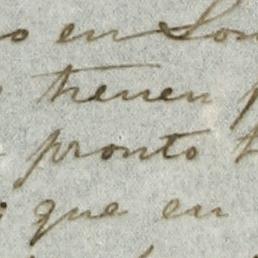 en
tienen
pronto
que en